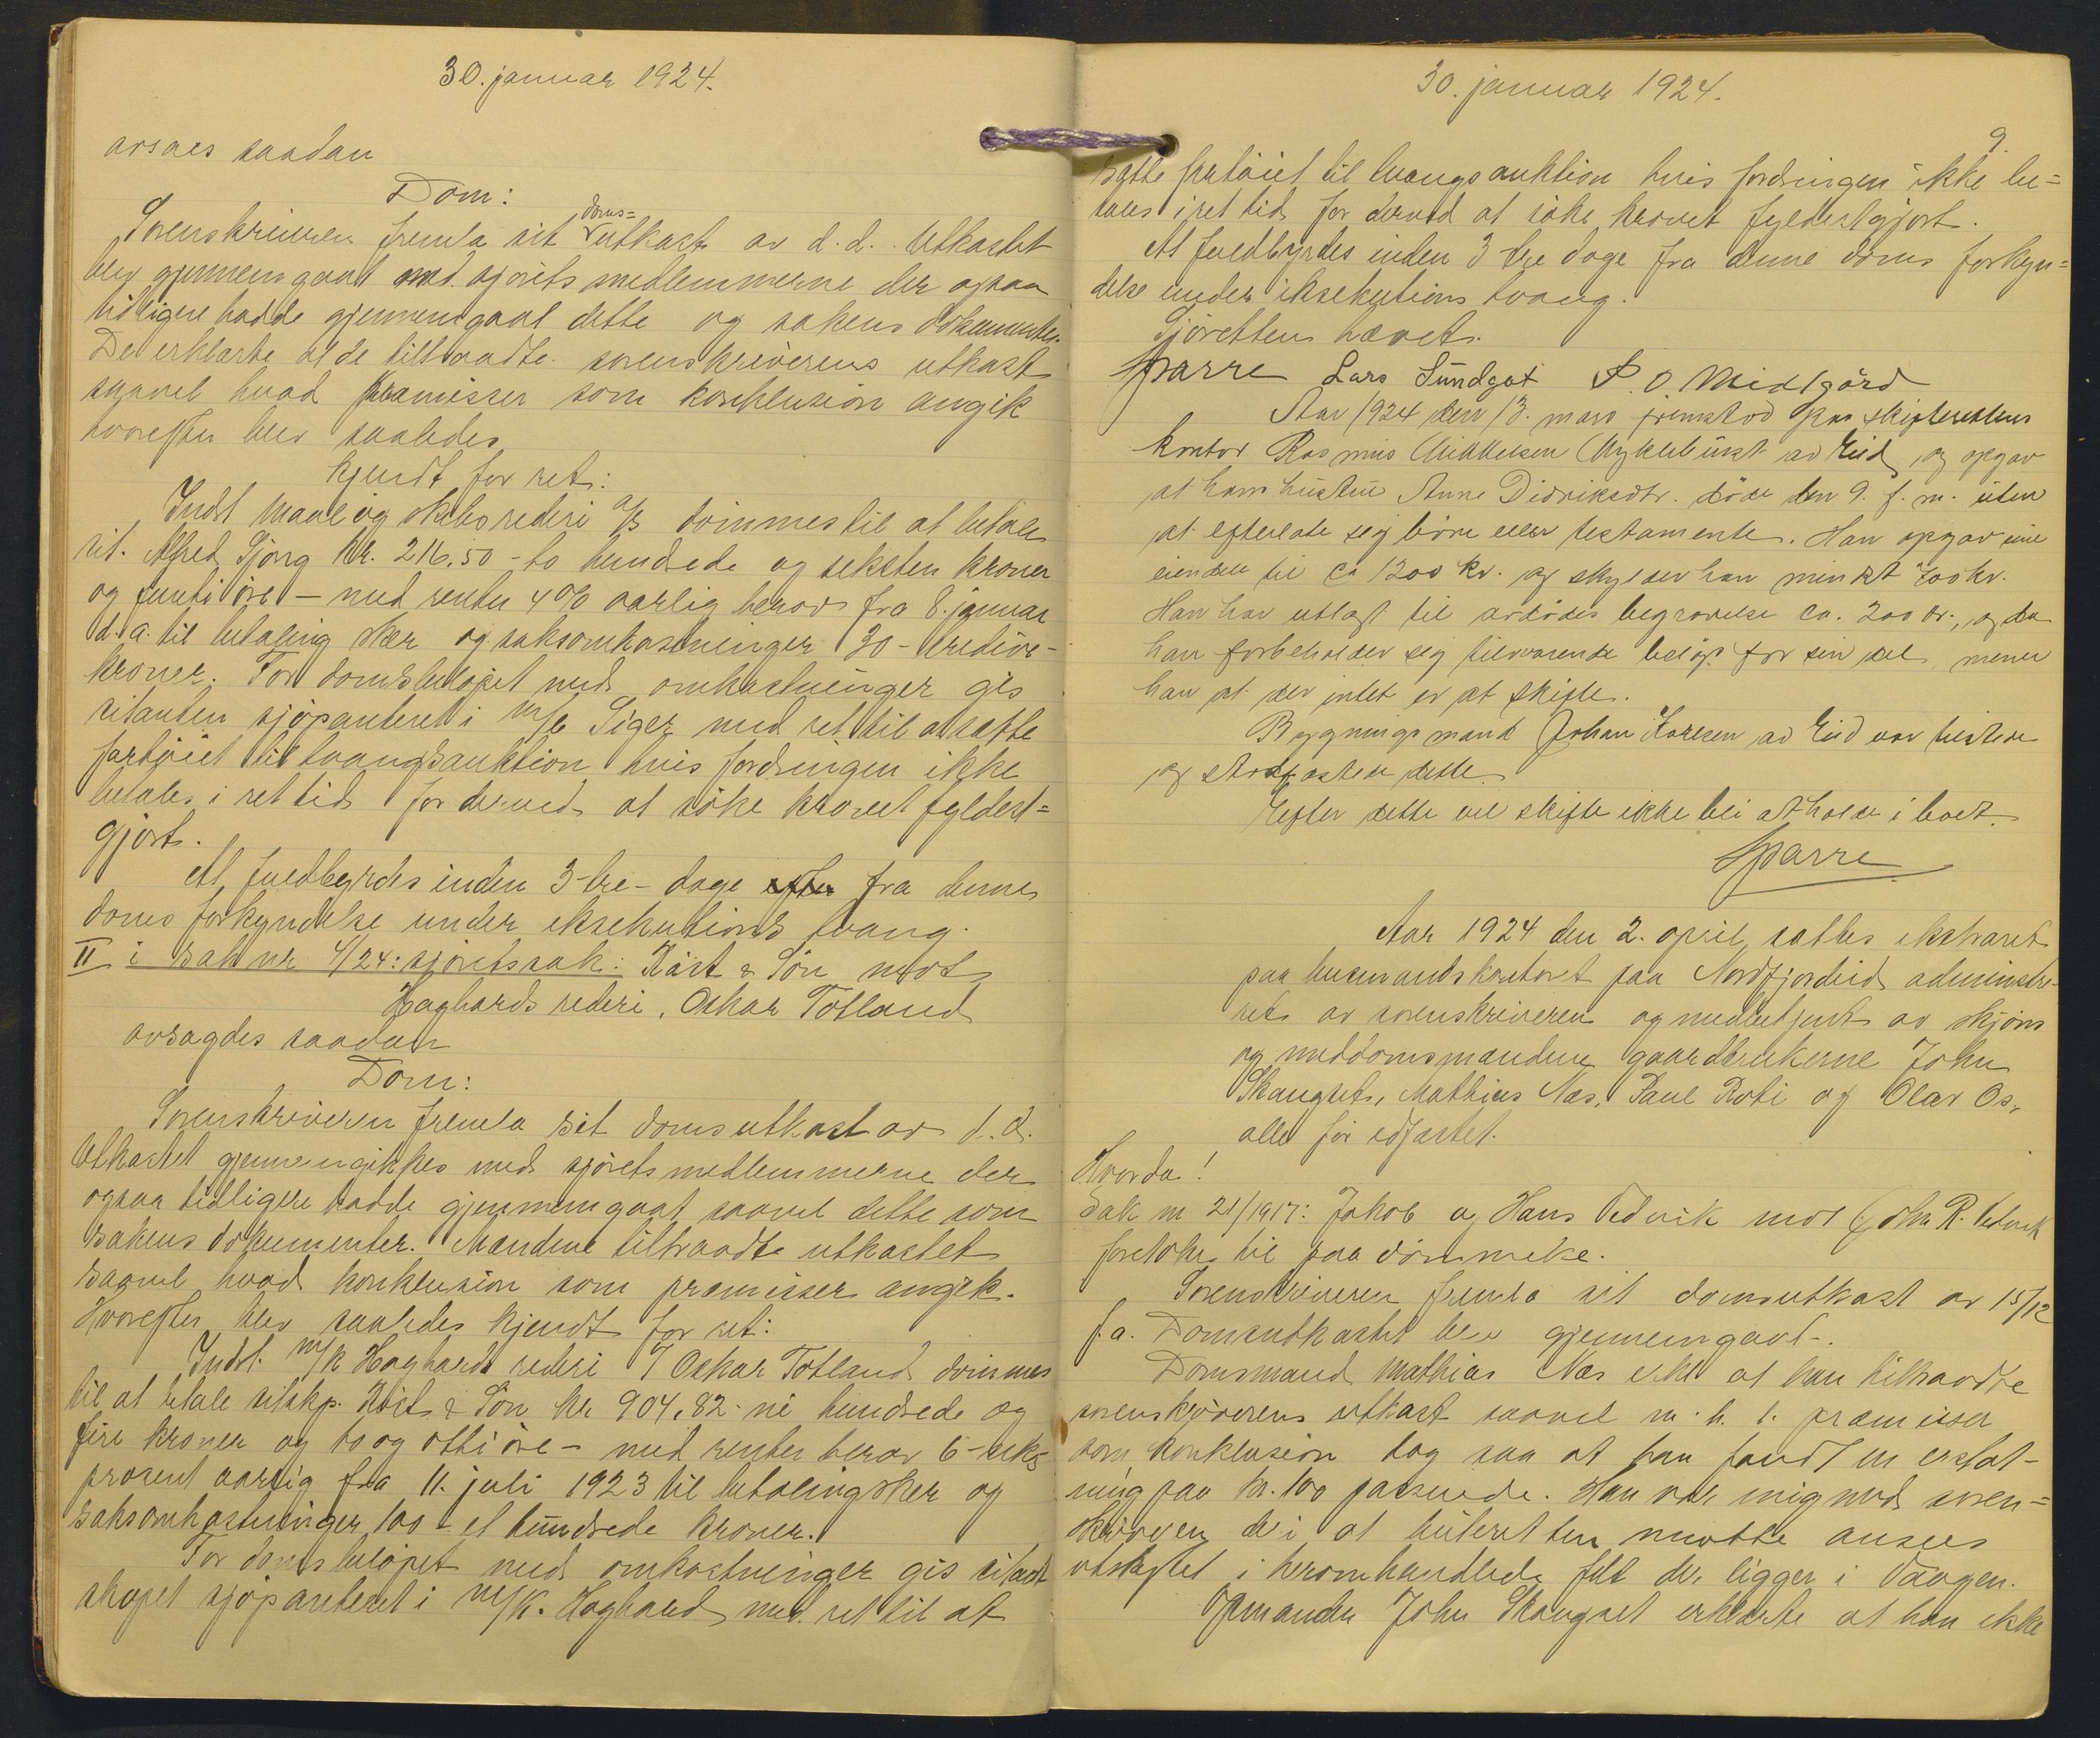 30. januar 1924.
avsaes saadan
Dom:
Sorenskriveren fremla sit doms=utkast av d.d. Utkastet
blev gjennemgaat med sjøretsmedlemmerne der ogsaa
tidligere hadde gjennemgaat dette og sakens dokumenter.
De erklærte at de tiltraadte sorenskriverens utkast
saavel hvad præmisser som konklusion angik
hvorefter blev saaledes
kjendt for ret:
Indst maal og skibsrederi A/S dømmes til at betale
cit. Alfred Gjörg kr. 216,50 - to hundrede og seksten kroner
og femti øre - med renter 4% aarlig herav fra 8. januar
d.a. til betaling sker og saksomkostninger 30 - tredive -
kroner. For domsbeløpet med omkostninger gis
citanten sjøpanteret i m/k Siger med ret til at sætte
fartøiet til tvangsauktion hvis fordringen ikke
betales i ret tid for derved at söke kravet fyldest=
gjort.
At fuldbyrdes inden 3 - tre - dage efter fra denne
doms forkyndelse under eksekutions tvang.
II i sak nr 4/24: sjøretssak: Räst & Sön mot
Hagbards rederi, Oskar Totland
avsagdes saadan
Dom:
Sorenskriveren fremla sit domsutkast av d.d.
Utkastet gjennemgikkes med sjøretsmedlemmerne der
ogsaa tidligere hadde gjennemgaat saavel dette som
sakens dokumenter. Mændene tiltraadte utkastet
saavel hvad konklusion som præmisser angik.
Hvorefter blev saaledes kjendt for ret:
Indst. m/k Hagbards rederi v/ Oskar Totland dømmes
til at betale citskp. Räst & Sön kr 904,82 - ni hundrede og
fire kroner og to og otti øre - med renter herav 6 - seks
prosent aarlig fra 11. juli 1923 til betaling sker og
saksomkostninger 100 - et hundrede kroner.
For domsbeløpet med omkostninger gis citant
skapet sjøpanteret i m/k. Hagbard med ret til at
30. januar 1924.
9.
sætte fartøiet til tvangsauktion hvis fordringen ikke be=
tales i ret tid for derved at söke kravet fyldestgjort.
At fuldbyrdes inden 3 tre dage fra denne doms forkyn=
delse under eksekutions tvang.
Sjøretten hævet.
Sparre Lars Sundgot P. O. Midtgård
Aar 1924 den 13. mars fremstod paa skifterettens
kontor Rasmus Mikkelsen Myklebust av Eid og opgav
at hans hustru Anne Didriksdtr. døde den 9. f. m. uten
at efterlate sig børn eller testamente. Han opgav sine
eiendele til ca 1200 kr. og skylder han mindst 700 kr.
Han har utlagt til avdødes begravelse ca. 200 kr., og da
han forbeholder sig tilsvarende beløp for sin del, mener
han at der intet er at skifte.
Bygningsmand Johan Karlsen av Eid var tilstede
og stadfæstede dette.
Efter dette vil skifte ikke bli at holde i boet.
Sparre
Aar 1924 den 2. april sattes ekstraret
paa lensmandskontoret paa Nordfjordeid administre-
ret av sorenskriveren og medbetjent av skjøns
og meddomsmændene gaardbrukerne John
Skaugset, Mathias Næs, Paul Roti og Olav Os,
alle før edfæstet.
Hvorda!
Sak nr 21/1917: Jakob og Hans Vedvik mot John R. Vedvik
foretokes til paadømmelse.
Sorenskriveren fremla sit domsutkast av 15/12
f.a. Domsutkastet blev gjennemgaat.
Domsmand Mathias Næs erkl. at han tiltraadte
sorenskriverens utkast saavel m. h. t. præmisser
som konklusion dog saa at han fandt en erstat-
ning paa kr. 100 passende. Han var enig med soren=
skriveren de i at utskiftet
i heromhandlede felt der ligger i Vaagen.
Opmanden John Skaugset erklærte at han ikke